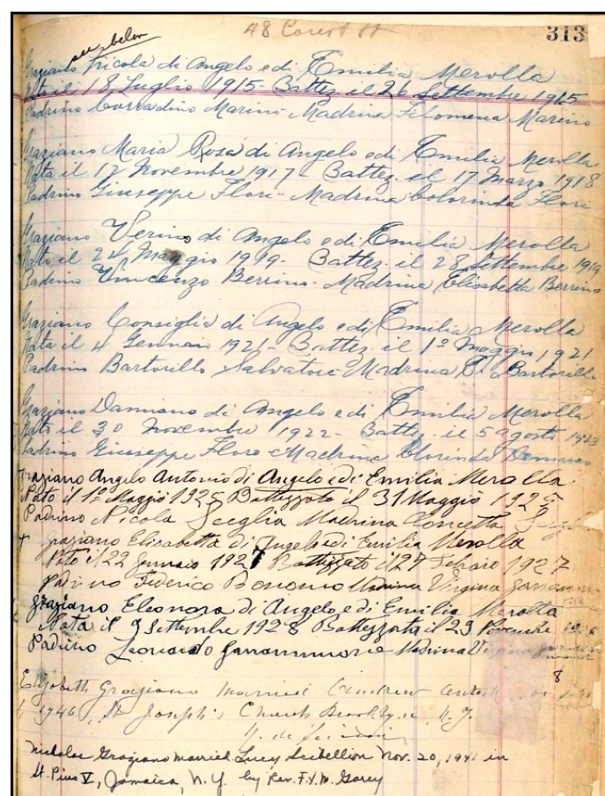 48 Court St
313
see below
Graziano Nicola di Angelo e di Emilia Merolla
Nato il 18 Luglio 1915 - Battez. il 26 Settembre 1915
Padrino Corradino Marini - Madrina Filomena Marino
Graziano Maria Rosa di Angelo e di Emilia Merolla
Nata il 17 Novembre 1917 - Battez. il 17 Marzo 1918
Padrino Giuseppe Flori - Madrina Colorinda Flori
Graziano Verino di Angelo e di Emilia Merolla
Nato il 24 Maggio 1919 - Battez. il 28 Settembre 1919
Padrino Vincenzo Berrino - Madrina Elisabetta Berrino
Graziano Consiglia di Angelo e di Emilia Merolla
Nata il 4 Gennaio 1921 - Battez. il 1º Maggio 1921
Padrino Bartorillo Salvatore Madrina Bartorillo
Graziano Damiano di Angelo e di Emilia Merolla
Nato il 30 Novembre 1922 - Battez. il 5 Agosto 1923
Padrino Giuseppe Flore Madrina Clorinda
Graziano Angelo Antonio di Angelo e di Emilia Merolla
Nato il 1º Maggio 1925 Battezzato il 31 Maggio 1925
Padrino Nicola Madrina Concetta
Graziano Elisabetta di Angelo e di Emilia Merolla
Nato il 22 Gennaio 1927 Battezzato il 27 1927
Padrino Federico Bonomo Madrina Virginia
Graziano Eleonora di Angelo e di Emilia Merolla
Nata il 9 Settembre 1928 Battezzata il 23
Padrino Leonardo Madrina
8
Elizabeth Graziano married Andrew
1946, St Joseph's Church Brooklyn, N.Y.
Nicholas Graziano married Lucy Scibellion Nov. 20, 1941 in
St. Pius V, Jamaica, N.Y. by Rev. F.X.M. Garey